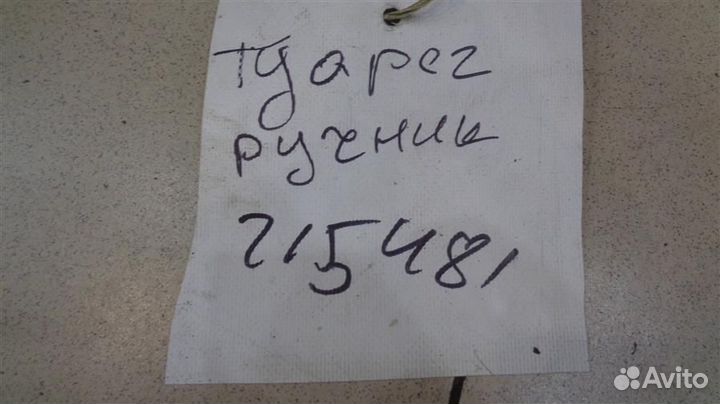 Туарег
ручник
215481
Avito